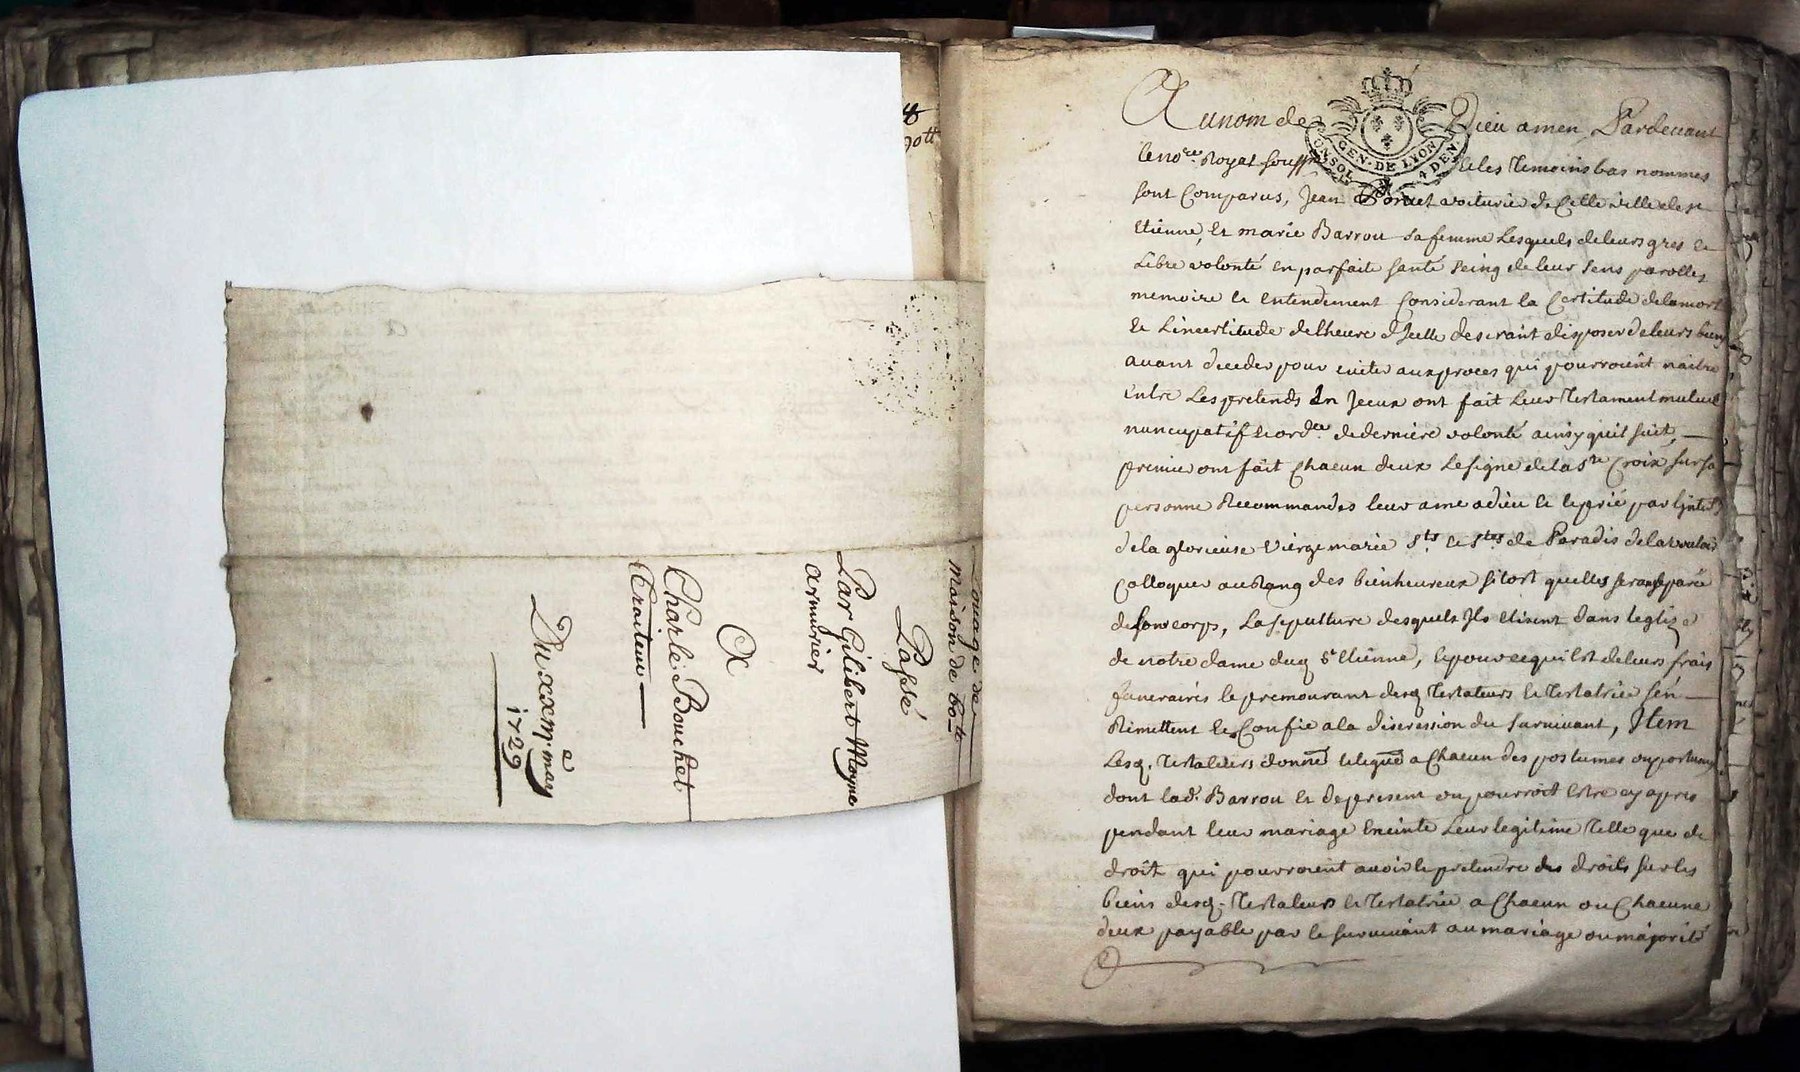 Louage de
maison de 60 #
Passé
Par Gilibert Moyne
armurier
A
Charle Bouchet
Traiteur
Du xx m.
1729
Au nom de Dieu amen, Pardevant
GEN. DE LYON
UN SOL 4 DEN
le no.re Royal soussé & les temoins bas nommes
sont Comparus, Jean voiturie de Cette ville de st
Etienne, Et marie Barrou sa femme Lesquels de leurs gres et
Libre volonté en parfaite santé seing de leur sens parolles
memoire et Entendement Considerant la Certitude de la mort
et Lincertitude de lheure dJcelle desirant disposer de leurs biens
avant deceder pour eviter aux proces qui pourroient naitre
entre Les pretends En Jceux ont fait Leur Testament mutuel
nuncupatif et ord.ce de derniere volonté ainsy quil suit,
premier ont fait Chacun deux Le signe de la s.te Croix sur sa
personne Recommandes leur ame a dieu et le prié par L
de la glorieuse Vierge marie s.ts et s.tes de Paradis de la vouloir
Colloquer au Rang des bienheureux sitost quelles sera separée
de son corps, La sepulture desquels Jls elisent dans leglize
de notre dame dud St Etienne, et pour ce qui est de leurs frais
funeraires le premourant desd Testateurs et Testatrice sen
Remettent et Confie a la discression du survivant, Jtem
Lesd. Testateurs donnent et leguent a Chacun des postumes ou portumes
dont lad. Barrou Et de present ou pourroit Estre cy apres
pendant leur mariage Enceinte Leur legitime Telle que de
droit qui pourroient avoir et pretendre des droits sur les
biens desd. Testateurs et Testatrice a Chacun ou Chacune
deux payable par le survivant au mariage ou majorité